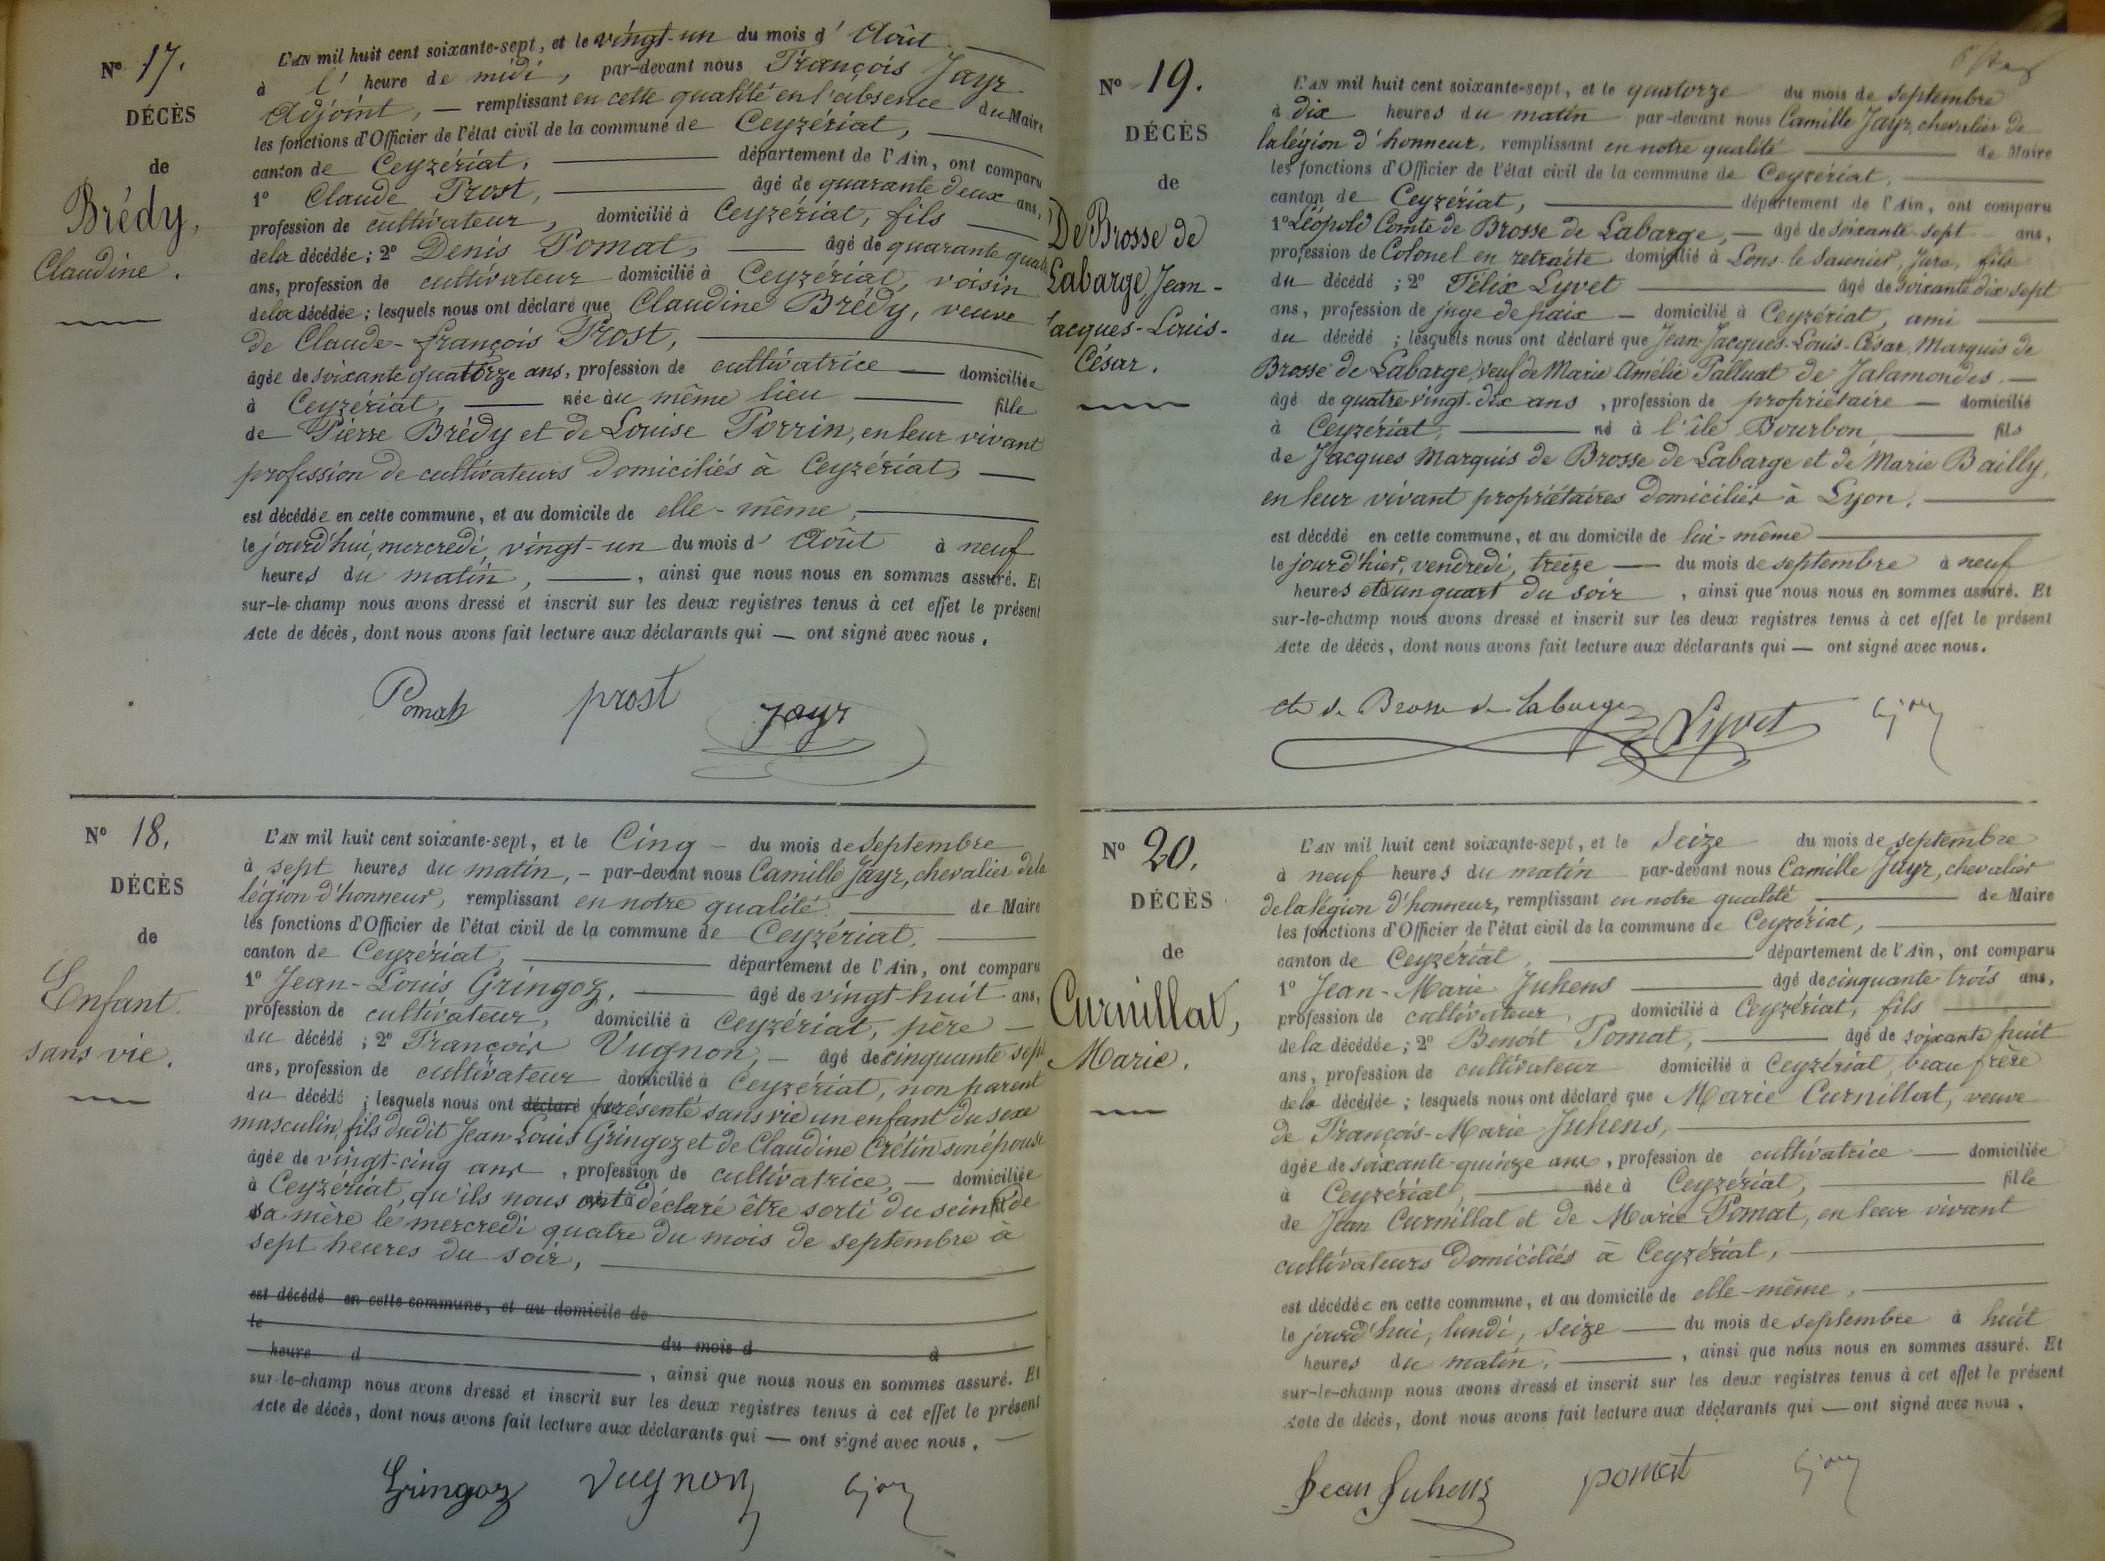 N° 17.
DÉCÈS
de
Brédy,
Claudine.
L'AN mil huit cent soixante-sept, et le vingt-un du mois d' Août
à l' heure de midi, par-devant nous François Jayr
Adjoint, remplissant en cette qualité en l'absence du Maire
les fonctions d'Officier de l'état civil de la commune de Ceyzériat,
canton de Ceyzériat, département de l'Ain, ont comparu
1° Claude Prost, âgé de quarante deux ans,
profession de cultivateur, domicilié à Ceyzériat, fils
de la décédée; 2° Denis Pomat, âgé de quarante quatre
ans, profession de cultivateur domicilié à Ceyzériat, voisin
de la décédée; lesquels nous ont déclaré que Claudine Brédy, veuve
de Claude-françois Prost,
âgée de soixante quatorze ans, profession de cultivatrice domiciliée
à Ceyzériat, née au même lieu fille
de Pierre Brédy et de Louise Perrin, en leur vivant
profession de cultivateurs domiciliés à Ceyzériat,
est décédée en cette commune, et au domicile de elle-même,
le jourd'hui, mercredi, vingt-un du mois d' Août à neuf
heures du matin, , ainsi que nous nous en sommes assuré. Et
sur-le-champ nous avons dressé et inscrit sur les deux registres tenus à cet effet le présent
Acte de décès, dont nous avons fait lecture aux déclarants qui — ont signé avec nous.
Pomat prost Jayr
N° 18.
DÉCÈS
de
Enfant
sans vie.
L'AN mil huit cent soixante-sept, et le Cinq du mois de Septembre
à sept heures du matin, par-devant nous Camille Jayr, chevalier de la
légion d'honneur, remplissant en notre qualité de Maire
les fonctions d'Officier de l'état civil de la commune de Ceyzériat,
canton de Ceyzériat, département de l'Ain, ont comparu
1° Jean-Louis Gringoz, âgé de vingt-huit ans,
profession de cultivateur, domicilié à Ceyzériat, père
du décédé; 2° François Vugnon, âgé de cinquante sept
ans, profession de cultivateur domicilié à Ceyzériat, non parent
du décédé; lesquels nous ont déclaré présenté sans vie un enfant du sexe
masculin, fils dudit Jean Louis Gringoz et de Claudine Crétin son épouse
âgée de vingt-cinq ans, profession de cultivatrice, domiciliée
à Ceyzériat, qu'ils nous ont déclaré être sorti du sein de
sa mère le mercredi quatre du mois de septembre à
sept heures du soir,
est décédé en cette commune, et au domicile de
le du mois d à
heure d , ainsi que nous nous en sommes assuré. Et
sur-le-champ nous avons dressé et inscrit sur les deux registres tenus à cet effet le présent
Acte de décès, dont nous avons fait lecture aux déclarants qui — ont signé avec nous.
Gringoz Vugnon
N° 19.
DÉCÈS
de
De Brosse de
Labarge, Jean-
Jacques-Louis-
César.
L'AN mil huit cent soixante-sept, et le quatorze du mois de septembre
à dix heures du matin par-devant nous Camille Jayr, chevalier de
la légion d'honneur, remplissant en notre qualité de Maire
les fonctions d'Officier de l'état civil de la commune de Ceyzériat,
canton de Ceyzériat, département de l'Ain, ont comparu
1° Léopold Comte de Brosse de Labarge, âgé de soixante-sept ans,
profession de Colonel en retraite domicilié à Lons-le-Saunier, Jura, fils
du décédé; 2° Félix Lyvet âgé de soixante dix sept
ans, profession de juge de paix domicilié à Ceyzériat, ami
du décédé; lesquels nous ont déclaré que Jean-Jacques-Louis-César, Marquis de
Brosse de Labarge, veuf de Marie Amélie Palluat de Jalamondes
âgé de quatre-vingt-dix ans, profession de propriétaire domicilié
à Ceyzériat, né à l'île Bourbon, fils
de Jacques Marquis de Brosse de Labarge et de Marie Bailly,
en leur vivant propriétaires domiciliés à Lyon,
est décédé en cette commune, et au domicile de lui-même
le jourd'hier, vendredi, treize du mois de septembre à neuf
heures et un quart du soir, ainsi que nous nous en sommes assuré. Et
sur-le-champ nous avons dressé et inscrit sur les deux registres tenus à cet effet le présent
Acte de décès, dont nous avons fait lecture aux déclarants qui — ont signé avec nous.
cte de Brosse de Labarge Lyvet
N° 20.
DÉCÈS
de
Curnillat,
Marie.
L'AN mil huit cent soixante-sept, et le Seize du mois de septembre
à neuf heures du matin par-devant nous Camille Jayr, chevalier
de la légion d'honneur, remplissant en notre qualité de Maire
les fonctions d'Officier de l'état civil de la commune de Ceyzériat,
canton de Ceyzériat, département de l'Ain, ont comparu
1° Jean-Marie Juhens âgé de cinquante trois ans,
profession de cultivateur, domicilié à Ceyzériat, fils
de la décédée; 2° Benoît Pomat, âgé de soixante huit
ans, profession de cultivateur domicilié à Ceyzériat, beau frère
de la décédée; lesquels nous ont déclaré que Marie Curnillat, veuve
de François-Marie Juhens,
âgée de soixante-quinze ans, profession de cultivatrice domiciliée
à Ceyzériat, née à Ceyzériat, fille
de Jean Curnillat et de Marie Pomat, en leur vivant
cultivateurs domiciliés à Ceyzériat,
est décédée en cette commune, et au domicile de elle-même,
le jourd'hui, lundi, seize du mois de septembre à huit
heures du matin, , ainsi que nous nous en sommes assuré. Et
sur-le-champ nous avons dressé et inscrit sur les deux registres tenus à cet effet le présent
Acte de décès, dont nous avons fait lecture aux déclarants qui — ont signé avec nous.
Jean Juhens pomat